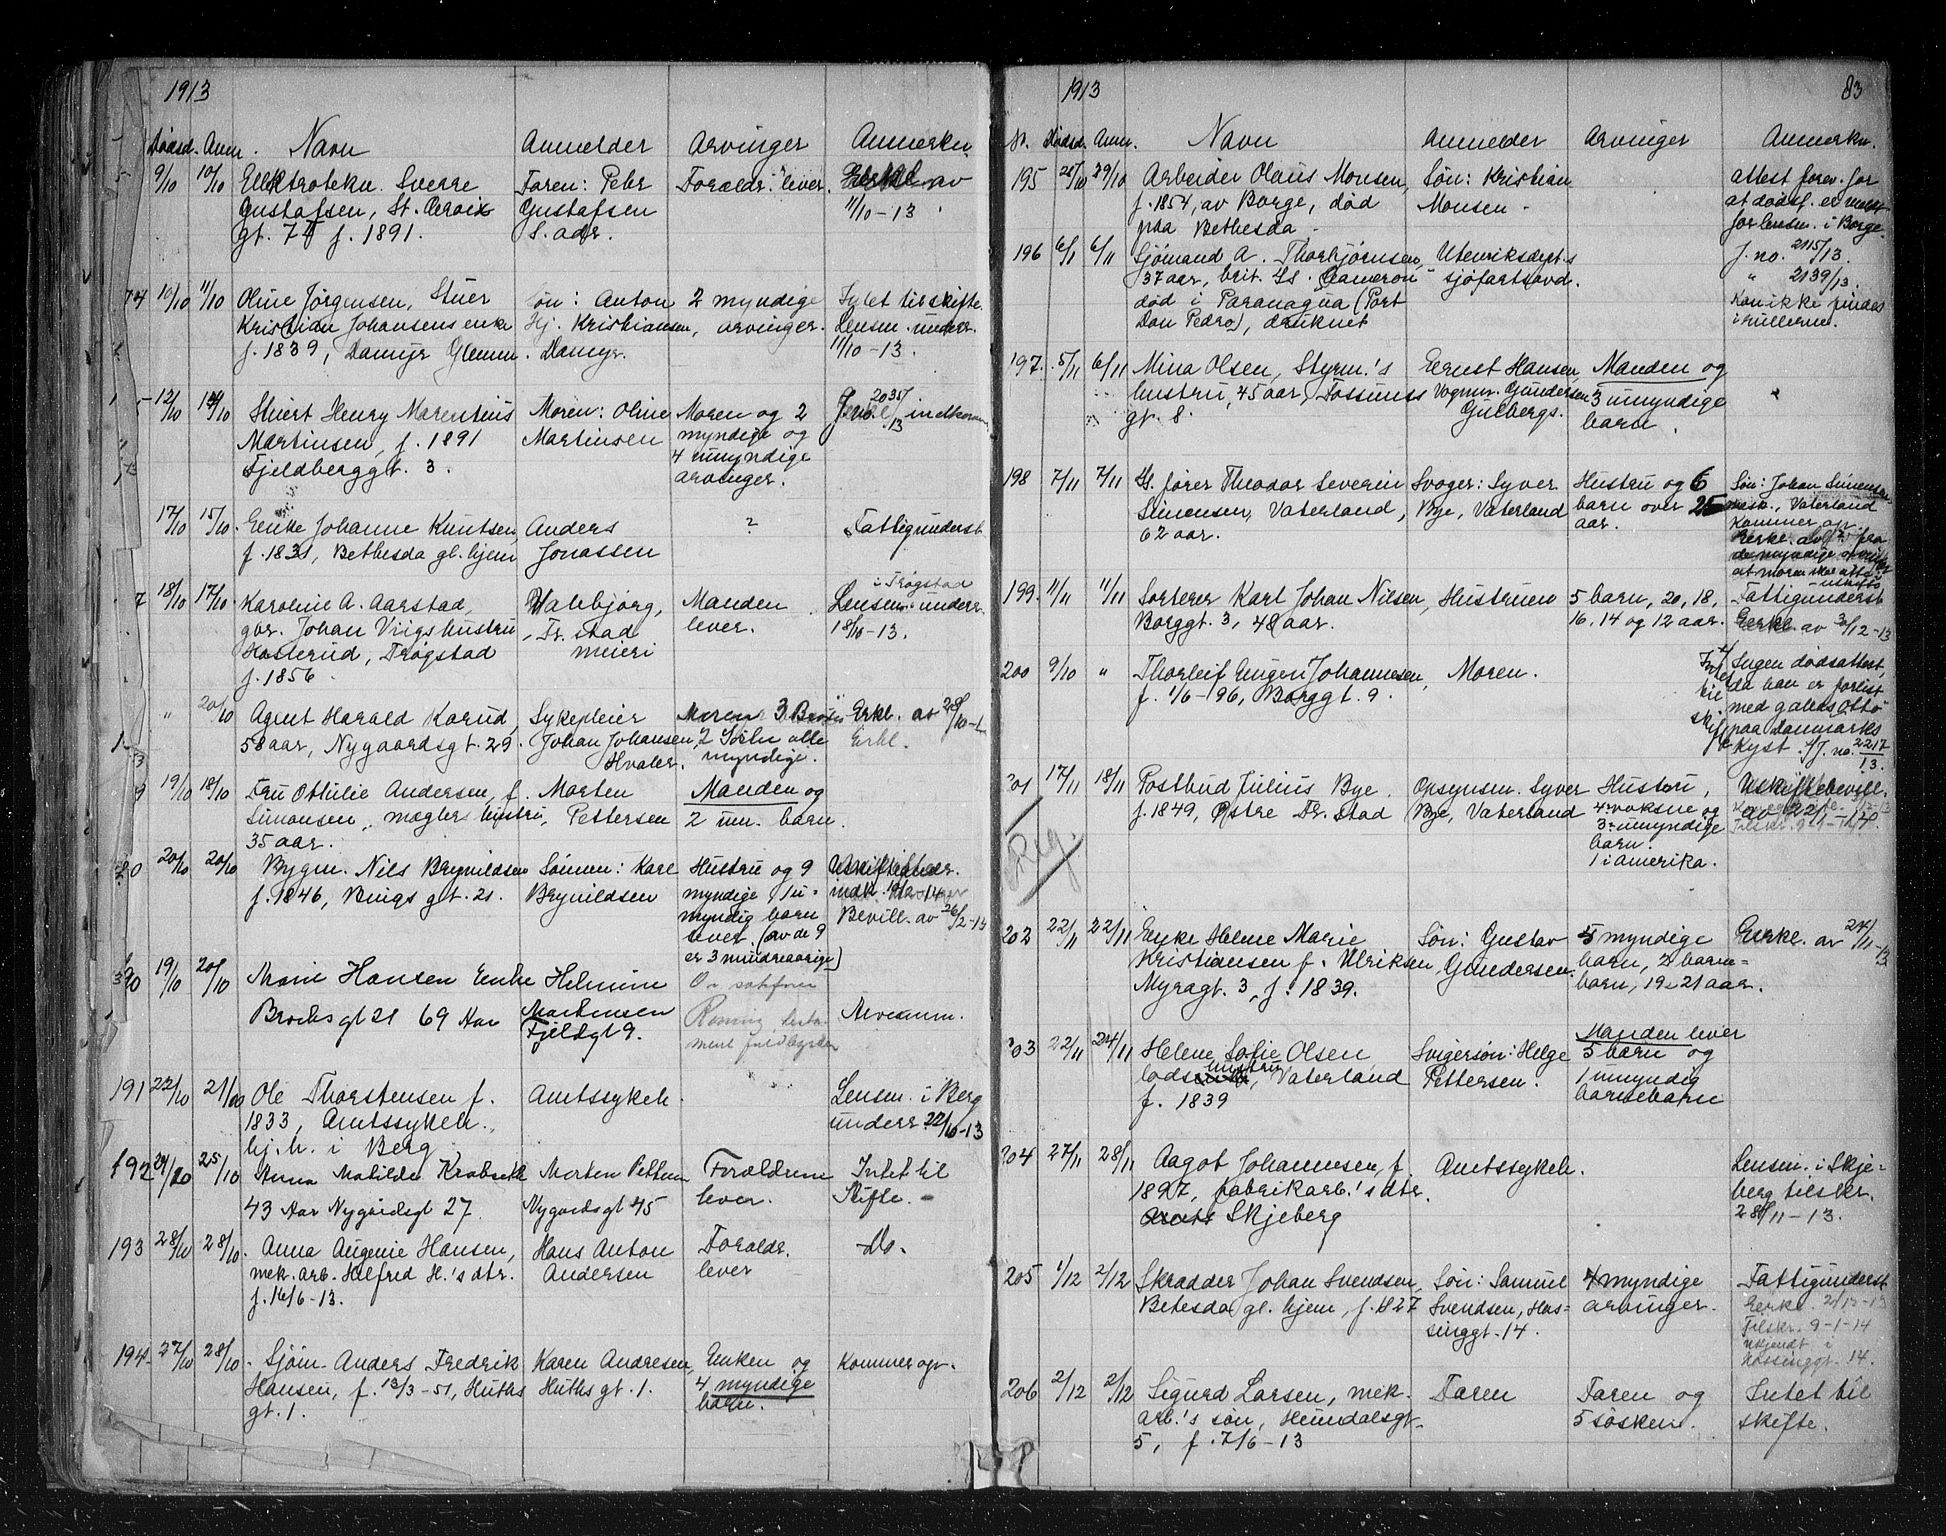 1913
Dødsd. Anm. Navn Anmelder Arvinger Anmerkn.
9/10 10/10 Elektrotekn. Sverre Faren: Petr Foreldr. lever. Erkl. av
Gustafsen, St. Gustafsen 11/10-13
gt. 74 f. 1891. S. adr.
74 10/10 11/10 Oline Jørgensen, Stuer Søn: Anton 2 myndige Intet til skifte.
Kristian Johansens enke Hj. Kristiansen, arvinger. Lensm. underr.
f. 1839, Damyr Glemm. Damyr. 11/10-13.
12/10 14/10 Stuert Henry Marentius Moren: Oline Moren og 2 J. no. 2035/13 indkom
Martinsen, f. 1891 Martinsen myndige og
Fjeldberggt. 3. 4 umyndige
arvinger.
17/10 15/10 Enke Johanne Knutsen Anders ? Fattigunderst.
f. 1831, Bethesda gl. hjem Jonassen
7 18/10 17/10 Karoline A. Aarstad, Valebjørg, Manden i Trøgstad
gbr. Johan Viigs hustru Fr. stad lever. Lensm. underr.
Trøgstad meieri 18/10-13.
f. 1856
" 20/10 Agent Harald Korud, Sykepleier Moren 3 Brødr Erkl. av 28/10-13
58 aar, Nygaardsgt. 29. Johan Johansen, 2 alle Erkl.
Hvaler. myndige.
9 19/10 18/10 Fru Ottilie Andersen, f. Morten Manden og
Simonsen, mæglers hustru, Pettersen 2 um. barn.
35 aar.
20/10 20/10 Bygm. Nils Brynildsen Sønnen: Karl Hustru og 9
f. 1846, Bings gt. 21. Brynildsen myndige, 1 u- indk.
myndig barn Bevill. av 26/2-14
lever. (av de 9
er 3 mindreaarige)
19/10 20/10 Marie Hansen Enke Helmine
Brochsgt 21 69 Aar Martinsen Arveanm.
Fjeldgt 9.
191 22/10 21/10 Ole Thorstensen f. Amtssykeh. Lensm. i Berg
1833, Amtssykeh. underr. 22/10-13
hj.h. i Berg
192 24/10 25/10 Anna Matilde Morten Petters Forældrene Intet til
43 Aar Nygårdsgt 27. Nygårdsgt 45 lever. Skifte.
193 28/10 28/10 Anna Augenie Hansen, Hans Anton Foreldr. Do.
mek. arb. Hilfred H.'s dtr. Andersen lever
f. 16/6-13.
194 27/10 28/10 Sjøm. Anders Fredrik Karen Andresen, Enken og Kommer op.
Hansen, f. 13/3-51, Huths Huths gt. 1. 4 myndige
gt. 1. barn.
1913 83
N. Dødsd. Anm. Navn Anmelder Arvinger Anmerkn.
195 28/10 29/10 Arbeider Olaus Monsen, Søn: Kristian attest forev. for
f. 1854, av Borge, død Monsen. at dødsf. er meldt
paa Bethesda. for lensm. i Borge.
196 6/11 6/11 Sjømand A. Thorbjørnsen, Utenriksdept.s J. no. 2115/13.
37 aar, brit. Ss. Cameron sjøfartsavd. " 2139/13.
død i Paranagua (Port Kan ikke findes
Don Pedro), druknet i rullerne.
197. 5/11 6/11 Mina Olsen, Styrm.'s Ernst Hansen, Manden og
hustru, 45 aar, Fossums Vognm. Gundersen 3 umyndige
gt. 8. Gulbergs. barn.
198 7/11 7/11 Ss. fører Theodor Severin Svoger: Syver Hustru og 6 Søn: Johan Simensen
Simensen, Vaterland, Bye, Vaterland barn over 25 Vaterland
62 aar. aar. kommer op.
199. 11/11 11/11 Sorterer Karl Johan Nilsen, Hustruen 5 barn, 20, 18, Fattigunderst.
Borggt. 3, 48 aar. 16, 14 og 12 aar. Erkl. av 3/12-13
200 9/10 " Thorleif Eugen Johannesen, Moren. Intet til skifte Ingen dødsattest,
f. 1/6-96, Borggt. 9. da han er forlist
med galeas Otto
paa Danmarks
kyst. J. no. 2217/13.
201 17/11 18/11 Postbud Julius Bye. Opsynsm. Syver Hustru, Uskiftebevill.
f. 1849, Østre Fr. stad Bye, Vaterland 4 voksne og av 22/1-14.
Reg. 3 umyndige
barn.
1 i Amerika.
202 22/11 22/11 Enke Helene Marie Søn: Gustav 5 myndige Erkl. av 24/11-13
Kristiansen f. Ulriksen, Gundersen. barn, 2 barne-
Myragt. 3, f. 1839. barn, 19 - 21 aar.
203 22/11 24/11 Helene Sofie Olsen Svigersøn: Helge Manden lever
lods hustru, Vaterland Pettersen. 5 barn og
f. 1839 1 umyndig
barnebarn
204 27/11 28/11 Aagot Johannesen, f. Amtssykeh. Lensm. i Skje-
1897, fabrikarb.'s dtr. berg tilskr.
Skjeberg 28/11-13.
205 1/12 2/12 Skrædder Johan Svendsen, Søn: Samuel 4 myndige Fattigunderst.
Betesda gl. hjem, f. 1827 Svendsen, Has- arvinger. Erkl. 2/12-13
singgt. 14. Tilskr. 9-1-14
ukjendt i
Hassinggt. 14.
206 2/12 2/12 Sigurd Larsen, mek. Faren Faren og Intet til
arb.'s søn, Heimdalsgt. 5 søsken. skifte.
5, f. 7/6-13